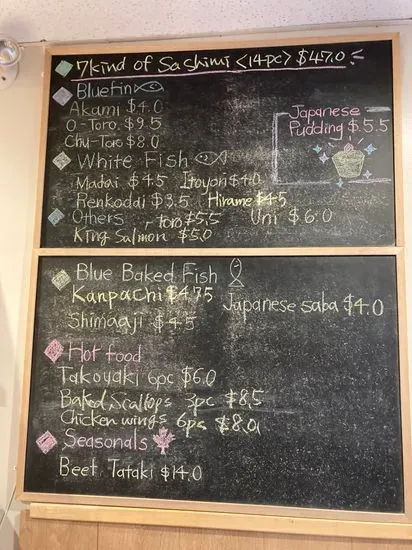 7kind of Sashimi <14pc> $47.0
Bluefin
Akami $4.0
O-Toro $9.5
Chu-Toro $8.0
Japanese
Pudding $5.5
White Fish
Madai $4.5 Itoyori $4.0
Renkodai $3.5 Hirame $4.5
Others - toro $5.5 Uni $6.0
King Salmon $5.0
Blue Baked Fish
Kanpachi $4.75
Japanese Saba $4.0
Shimaaji $4.5
Hot food
Takoyaki 6pc $6.0
Baked Scallops 3pc $8.5
Chicken wings 6ps $8.0
Seasonals
Beef Tataki $14.0